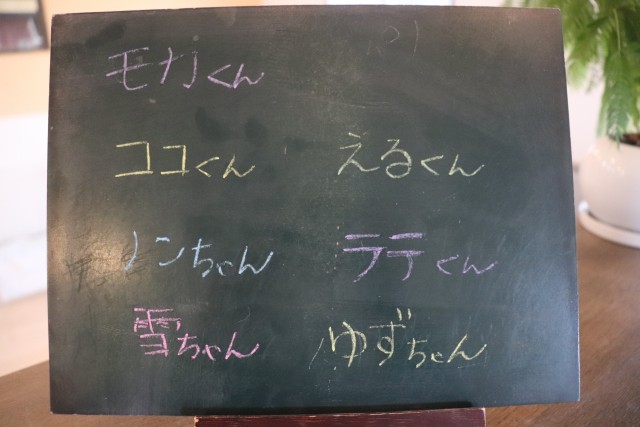 モカくん
ココくん えるくん
ノンちゃん ラテくん
雪ちゃん ゆずちゃん